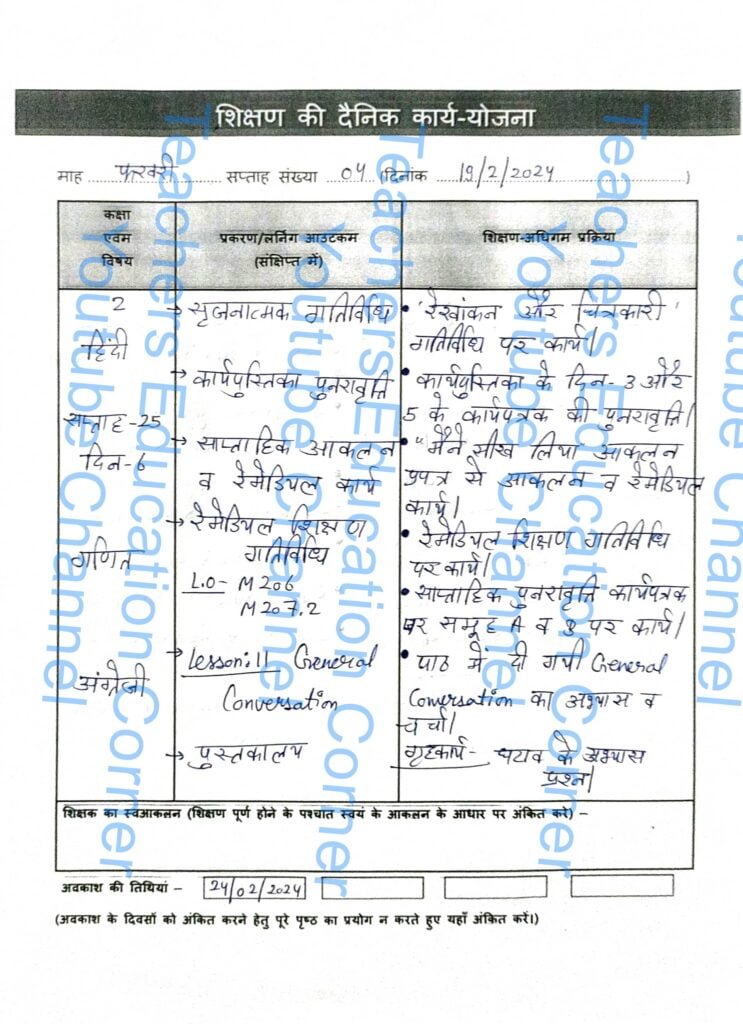 शिक्षण की दैनिक कार्य-योजना
माह फरवरी सप्ताह संख्या 04 (दिनांक 19/2/2024)
कक्षा
एवम
विषय
प्रकरण/लर्निंग आउटकम
(संक्षिप्त में)
शिक्षण-अधिगम प्रक्रिया
2
हिंदी
सप्ताह-25
दिन-6
गणित
अंग्रेजी
→ सृजनात्मक गतिविधि
→ कार्यपुस्तिका पुनरावृत्ति
→ साप्ताहिक आकलन
व रेमेडियल कार्य
→ रेमेडियल शिक्षण
गतिविधि
L.O- M206
M207.2
→ Lesson:11 General
Conversation
→ पुस्तकालय
• 'रेखांकन और चित्रकारी'
गतिविधि पर कार्य।
• कार्यपुस्तिका के दिन-3 और
5 के कार्यपत्रक की पुनरावृत्ति।
• "मैंने सीख लिया आकलन
प्रपत्र से आकलन व रेमेडियल
कार्य।
• रेमेडियल शिक्षण गतिविधि
पर कार्य।
• साप्ताहिक पुनरावृत्ति कार्यपत्रक
पर समूह A व B पर कार्य।
• पाठ में दी गयी General
Conversation का अभ्यास व
चर्चा।
गृहकार्य- घटाव के अभ्यास
प्रश्न।
शिक्षक का स्वआकलन (शिक्षण पूर्ण होने के पश्चात स्वयं के आकलन के आधार पर अंकित करे) –
अवकाश की तिथियां – 24/02/2024
(अवकाश के दिवसों को अंकित करने हेतु पूरे पृष्ठ का प्रयोग न करते हुए यहाँ अंकित करें।)
Teachers Education Corner
Youtube Channel
Teachers Education Corner
Youtube Channel
Teachers Education Corner
Youtube Channel
Teachers Education Corner
Youtube Channel